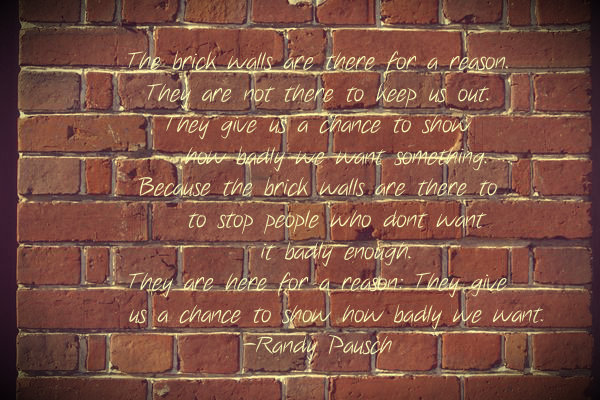 The brick walls are there for a reason.
They are not there to keep us out.
They give us a chance to show
how badly we want something.
Because the brick walls are there to
to stop people who dont want
it badly enough.
They are here for a reason: They give
us a chance to show how badly we want.
-Randy Pausch